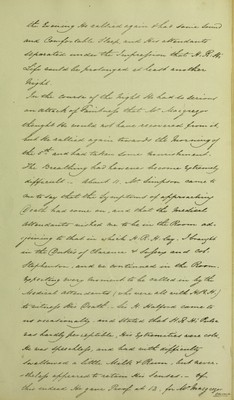 the Evening He rallied again & had some sound
and Comfortable Sleep and His attendants
separated under the Impression that H.R.H.
Life could be prolonged at least another
Night.
In the course of the Night He had so serious
an attack of Fainting that Mr. Macgregor
thought He could not have recovered from it,
but He rallied again towards the Morning of
the 5th and had taken some nourishment.
The Breathing had become become extremely
difficult — about 11. Mr. Simpson came to
me to say that the Symptoms of approaching
Death had come on, and that the Medical
Attendants wished me to be in the Room ad-
joining to that in which H.R.H. lay. I brought
in the Dukes of Clarence & Sussex and Col.
Stephenson, and we continued in the Room,
Expecting every moment to be called in by the
Medical attendants (who were all with H.R.H.)
to witness His Death. Sir H. Halford came to
us occasionally and stated that H.R.H. Pulse
was hardly perceptible, His extremities were cold,
He was speechless, and had with difficulty
swallowed a little Milk & Rum, but never-
theless appeared to retain His Senses. Of
this indeed He gave Proof at 12, for Mr. Macgregor